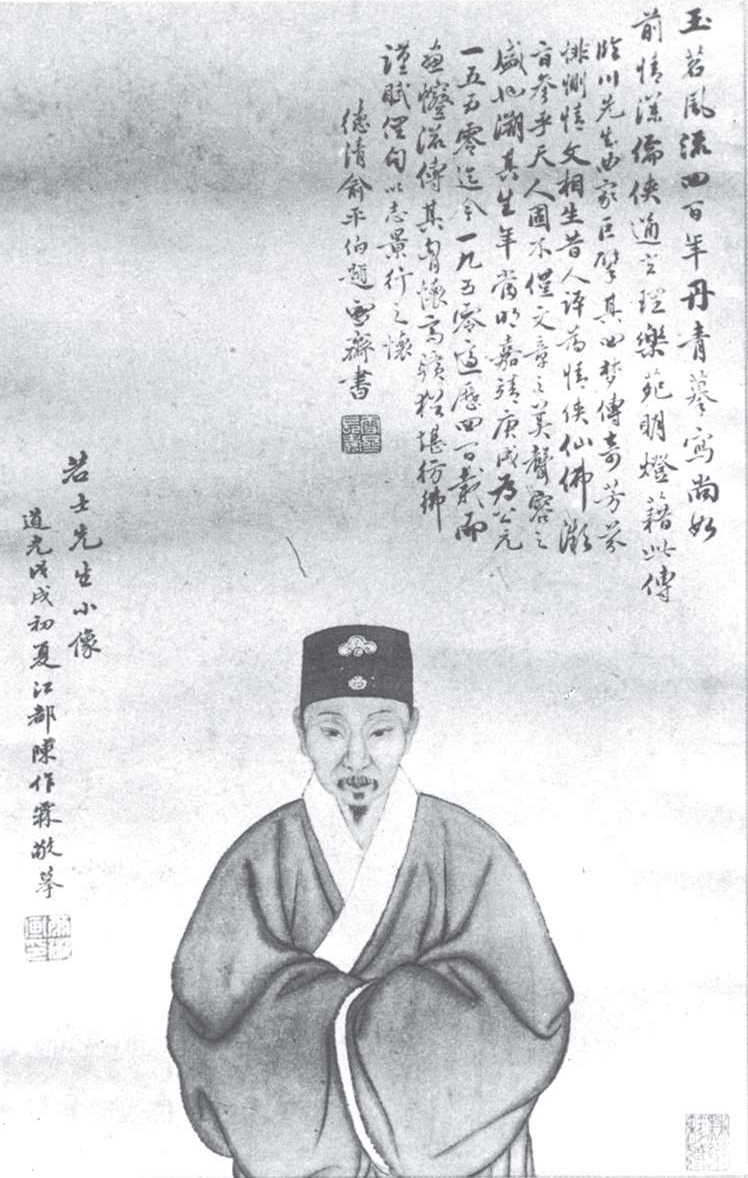 玉茗風流四百年丹青摹寫尚如
前情深儒俠通玄理樂苑明燈藉此傳
臨川先生曲家巨擘其四夢傳奇芳芬
悱惻情文相生昔人評為情俠仙佛
參乎天人固不僅文章之美聲容之
盛也溯其生年當明嘉靖庚戌為公元
一五五零迄今一九五零適歷四百載而
傳其胸懷高曠猶堪彷彿
謹賦俚句以志景行之懷
德清俞平伯題 雪齋書
若士先生小像
道光戊戌初夏江都陳作霖敬摹